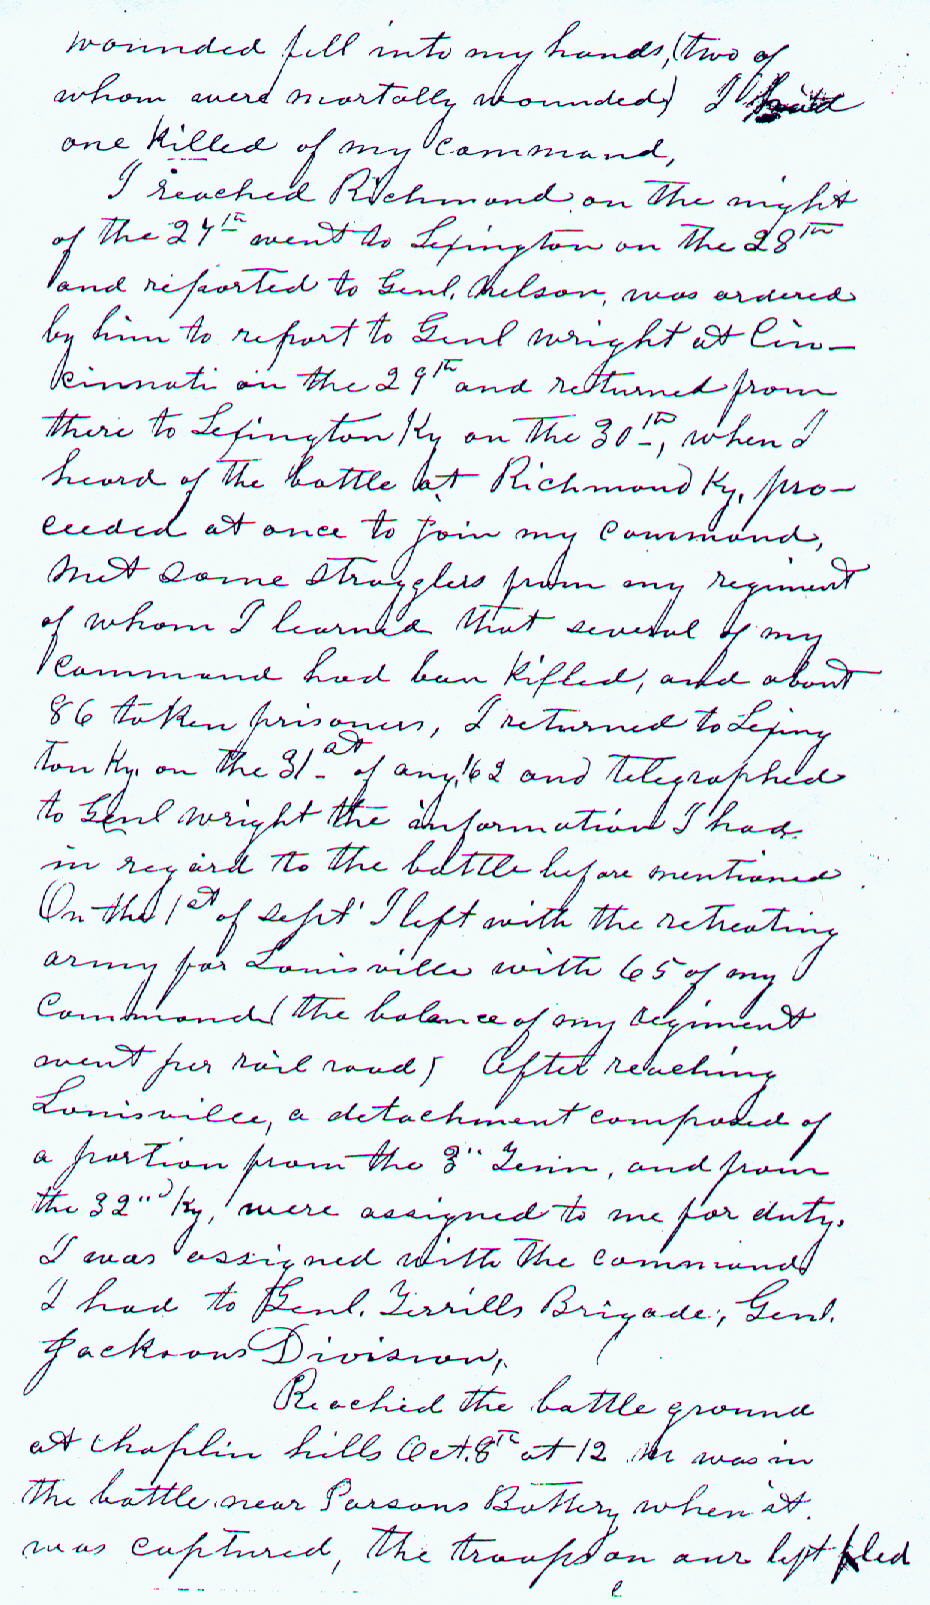 wounded fell into my hands, (two of
whom were mortally wounded) I had
one killed of my command,
I reached Richmond on the night
of the 24th went to Lexington on the 28th
and reported to Genl. Nelson, was ordered
by him to report to Genl Wright at Cin-
cinnati on the 29th and returned from
there to Lexington Ky on the 30th, when I
heard of the battle at Richmond Ky, pro-
ceeded at once to join my command,
Met some stragglers from my regiment
of whom I learned that several of my
command had been killed, and about
86 taken prisoners, I returned to Lexing
ton Ky. on the 31st of Aug. '62 and telegraphed
to Genl Wright the information I had
in regard to the battle before mentioned
On the 1st of Sept I left with the retreating
army for Louisville with 65 of my
command (the balance of my regiment
went per rail road) After reaching
Louisville, a detachment composed of
a portion from the 3" Tenn, and from
the 32"d Ky, were assigned to me for duty.
I was assigned with the command
I had to Genl. Terrills Brigade, Genl.
Jacksons Division,
Reached the battle ground
at Chaplin hills Oct. 8th at 12 M was in
the battle near Parsons Battery when it
was captured, the troops on our left fled